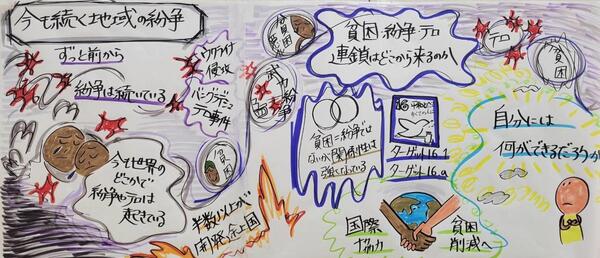 今も続く地域の紛争
ずっと前から
紛争は続いている
ウクライナ
侵攻
バングラデシュ
テロ事件
今も世界の
どこかで
紛争やテロは
起きている
貧困
武力紛争
貧困
半数以上が
開発途上国
貧困 紛争 テロ
連鎖はどこから来るのか
貧困=紛争では
ないが関係性は
強くなっている
ターゲット16.1
ターゲット16.a
国際
協力
貧困
削減へ
テロ
貧困
自分には
何ができるだろうか